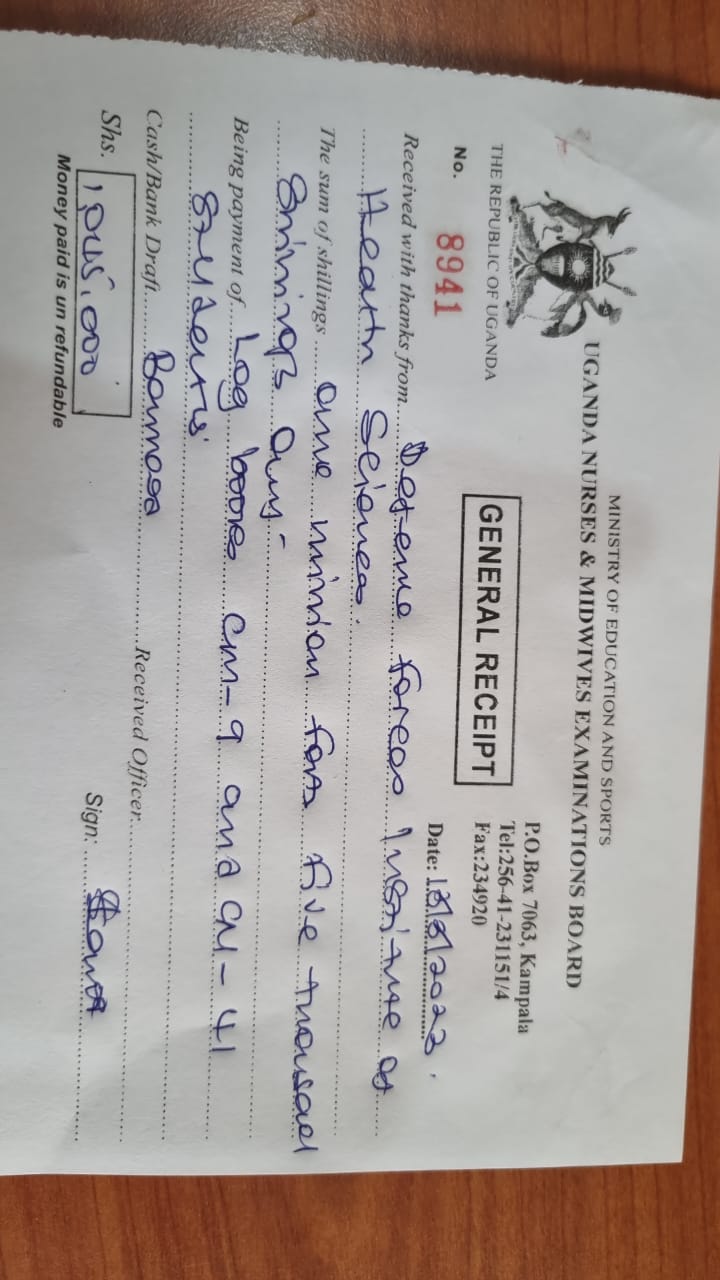 MINISTRY OF EDUCATION AND SPORTS
UGANDA NURSES & MIDWIVES EXAMINATIONS BOARD
P.O.Box 7063, Kampala
Tel:256-41-231151/4
Fax:234920
THE REPUBLIC OF UGANDA
GENERAL RECEIPT
No. 8941
Date: 2022
Received with thanks from Defence forces Institute of
Health Sciences.
The sum of shillings One million forty five thousand
Shillings Only.
Being payment of Log books CM-9 and CN-41
Students
Cash/Bank Draft Received Officer
Shs. 1,045,000 Sign:
Money paid is un refundable